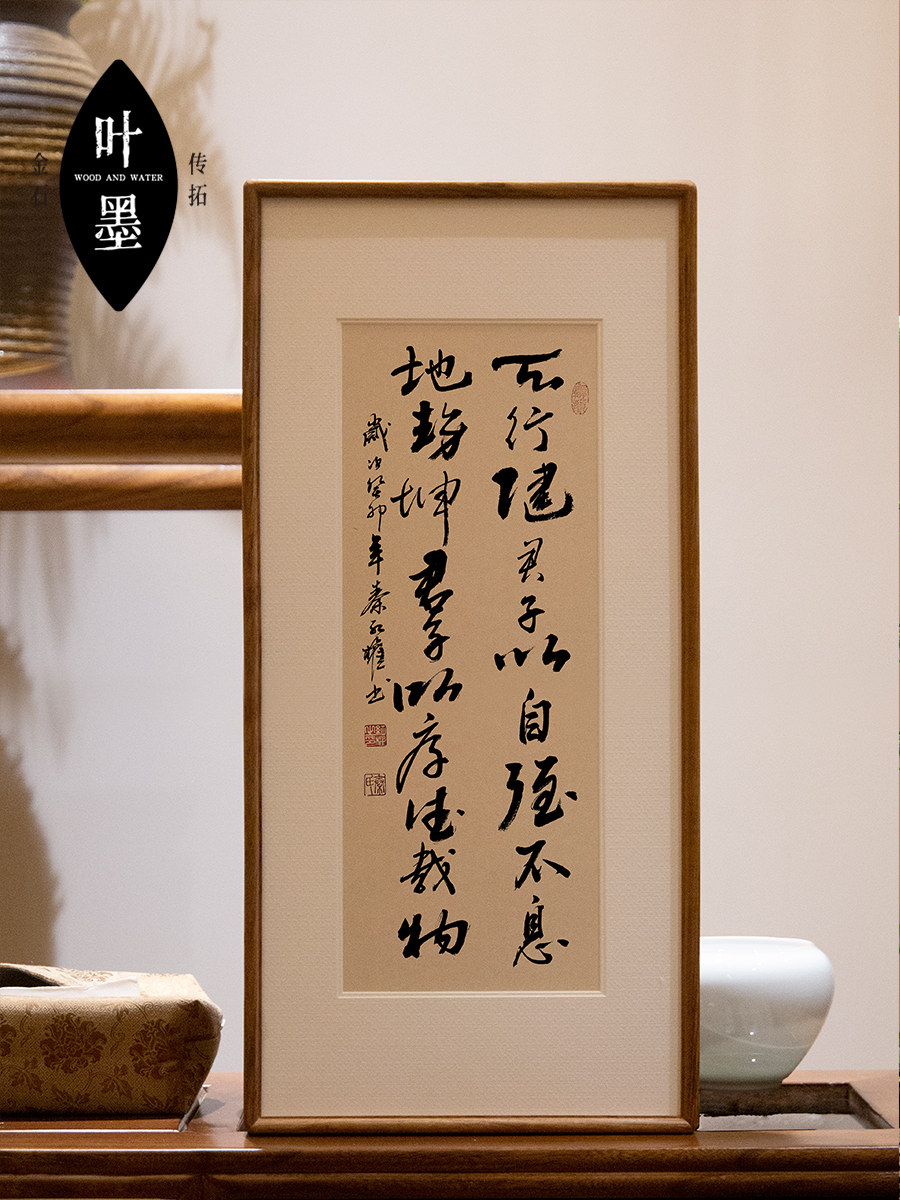 叶
WOOD AND WATER
墨
金石
传拓
天行健君子以自强不息
地势坤君子以厚德载物
歲次癸卯年秦